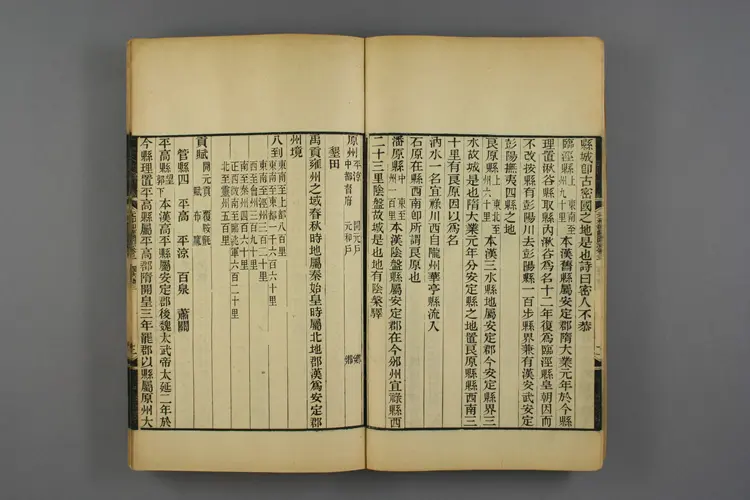 縣城卽古密國之地是也詩曰密人不恭
臨涇縣上 東南至州九十里 本漢舊縣屬安定郡隋大業元年於今縣
理置湫谷縣取縣內湫谷爲名十二年復爲臨涇縣皇朝因而
不改按縣有彭陽川去彭陽縣一百步縣界兼有漢安武安定
彭陽撫夷四縣之地
良原縣上 東北至州六十里 本漢三水縣地屬安定郡今安定縣界三
水故城是也隋大業元年分安定縣之地置良原縣縣西南三
十里有良原因以爲名
汭水一名宜祿川西自隴州華亭縣流入
石原在縣西南卽所謂良原也
潘原縣中 東至州 百里 本漢陰盤縣屬安定郡在今邠州宜祿縣西
二十三里陰盤故城是也地有陰槃驛
原州平涼中都督府 開元戶 鄉 元和戶 鄉
墾田
禹貢雍州之域春秋時地屬秦始皇時屬北地郡漢爲安定郡
州境
八到東南至上都八百里
東南至東都一千六百六十里
東南至涇州三百二十里
西至會州三百九十里
南至秦州四百六十里
正西微南至臨洮軍六百二十里
北至靈州五百里
貢賦開元貢 覆鞍氈
賦 布麻
管縣四 平高 平涼 百泉 蕭關
平高縣望 郭下 本漢高平縣屬安定郡後魏太武帝太延二年於
今縣理置平高縣屬平高郡隋開皇三年罷郡以縣屬原州大